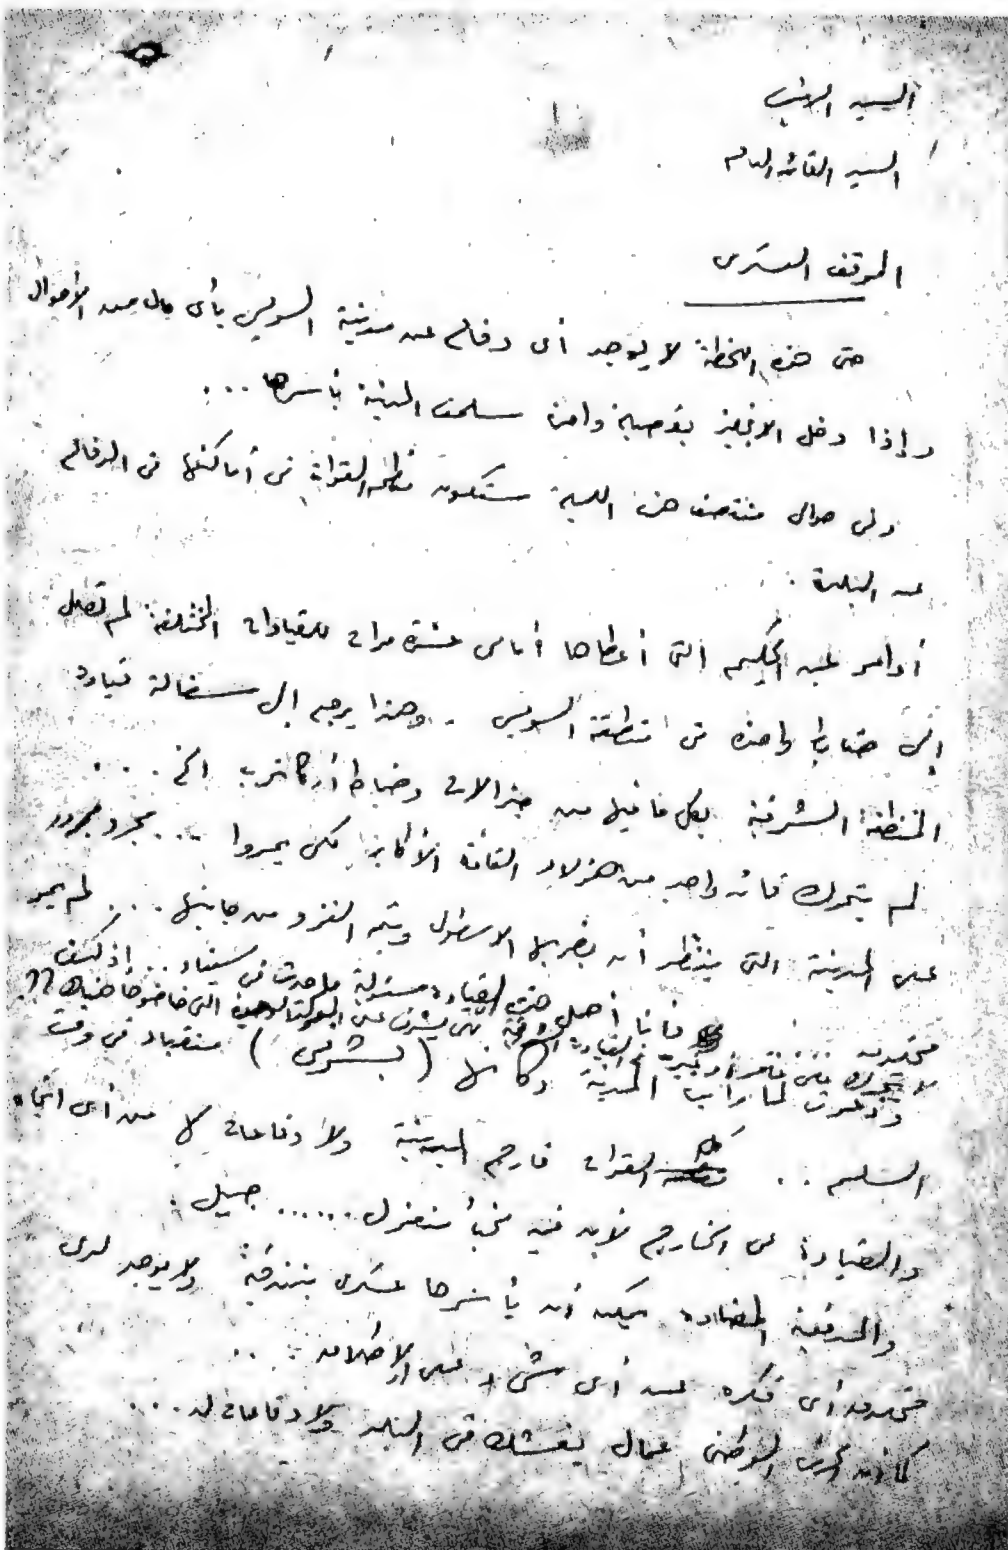 السيد الرئيس
السيد القائد العام
الموقف العسكرى
حتى هذه اللحظة لا يوجد أى دفاع عن مدينة السويس بأى حال من الأحوال
وإذا دخل الانجليز بفصيلة واحدة سلمت المدينة بأسرها ...
وفى حوالى منتصف هذه الليلة ستكون القوات فى أماكنها فى الدفاع
عن البلدة .
أوامر عبد الحكيم التى أعطاها أمامى عشرة مرات للقيادات المختلفة لم تصل
إلى ضابط واحد فى منطقة السويس - وهذا يرجع إلى قيادة
المنطقة الشرقية بكل ما فيها من جنرالات وضباط أركان حرب الخ ...
لم يتحرك قائد واحد من هؤلاء القادة الأكابر لكى يمروا ... مجرد مرور
على المدينة التى ينتظر أن يضربها الاسطول ويتم الغزو من جانبها ... لم يمر
مخلوق فانا أحمل هذه القيادة مسئولية ما حدث فى سيناء .. إذ كيف
لا يتحرك لكى يشرف على التى خاضوها هناك ؟؟
وذعرت لما رأيت المدينة وكأنها ( بسترس ) ستقباد فى وقت
السلم .. القوات خارج المدينة ولا دفاعات لها من أى اتجاه
والقيادة فى الخارج لابد فيه مخبأ منعزل ...... جميل .
والمدفعية المضادة يمكن أن يأسرها عسكرى ببندقية ولا يوجد لدى
مخلوق أى فكره عن أى شىء على الإطلاق ..
كما أن الحرس الوطنى عمال فى البلد ولا دفاعات له ...